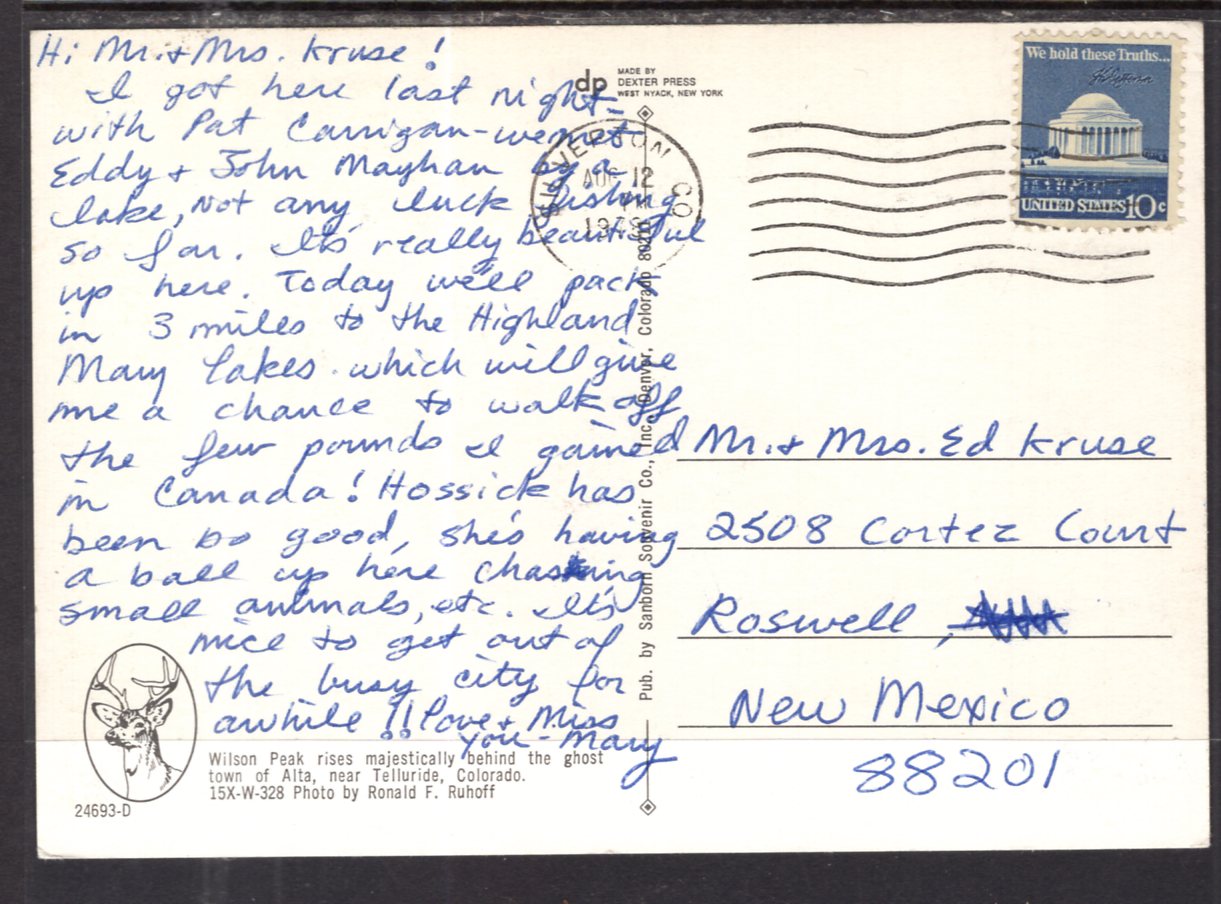 Hi Mr. + Mrs. Kruse!
I got here last night -
with Pat Carrigan - we met
Eddy + John Mayhan by a
lake, Not any luck fishing
so far. It's really beautiful
up here. Today we'll pack
in 3 miles to the Highland
Mary Lakes which will give
me a chance to walk off
the few pounds I gained
in Canada! Hossick has
been so good, she's having
a ball up here chasing
small animals, etc. It's
nice to get out of
the busy city for
awhile!! Love + Miss
you - Mary
dp MADE BY
DEXTER PRESS
WEST NYACK, NEW YORK
SILVERTON CO
AUG 12
PM
We hold these Truths...
UNITED STATES 10c
Pub. by Sanborn Souvenir Co., Inc., Denver, Colorado
Mr. + Mrs. Ed Kruse
2508 Cortez Court
Roswell,
New Mexico
88201
Wilson Peak rises majestically behind the ghost
town of Alta, near Telluride, Colorado.
15X-W-328 Photo by Ronald F. Ruhoff
24693-D